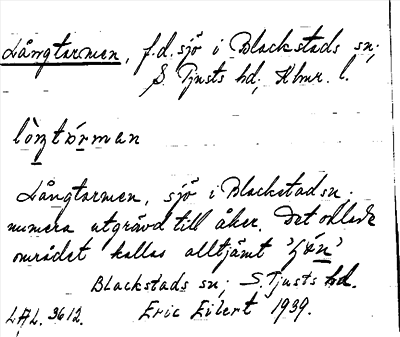 Långtarmen, f.d. sjö i Blackstads sn;
S. Tjusts hd; Klmr. l.
lòŋtárman
Långtarmen, sjö i Blackstad sn.
numera utgrävd till åker. Det odlade
området kallas alltjämt
Blackstads sn; S. Tjusts hd.
LAL. 3612. Eric Eilert 1939.